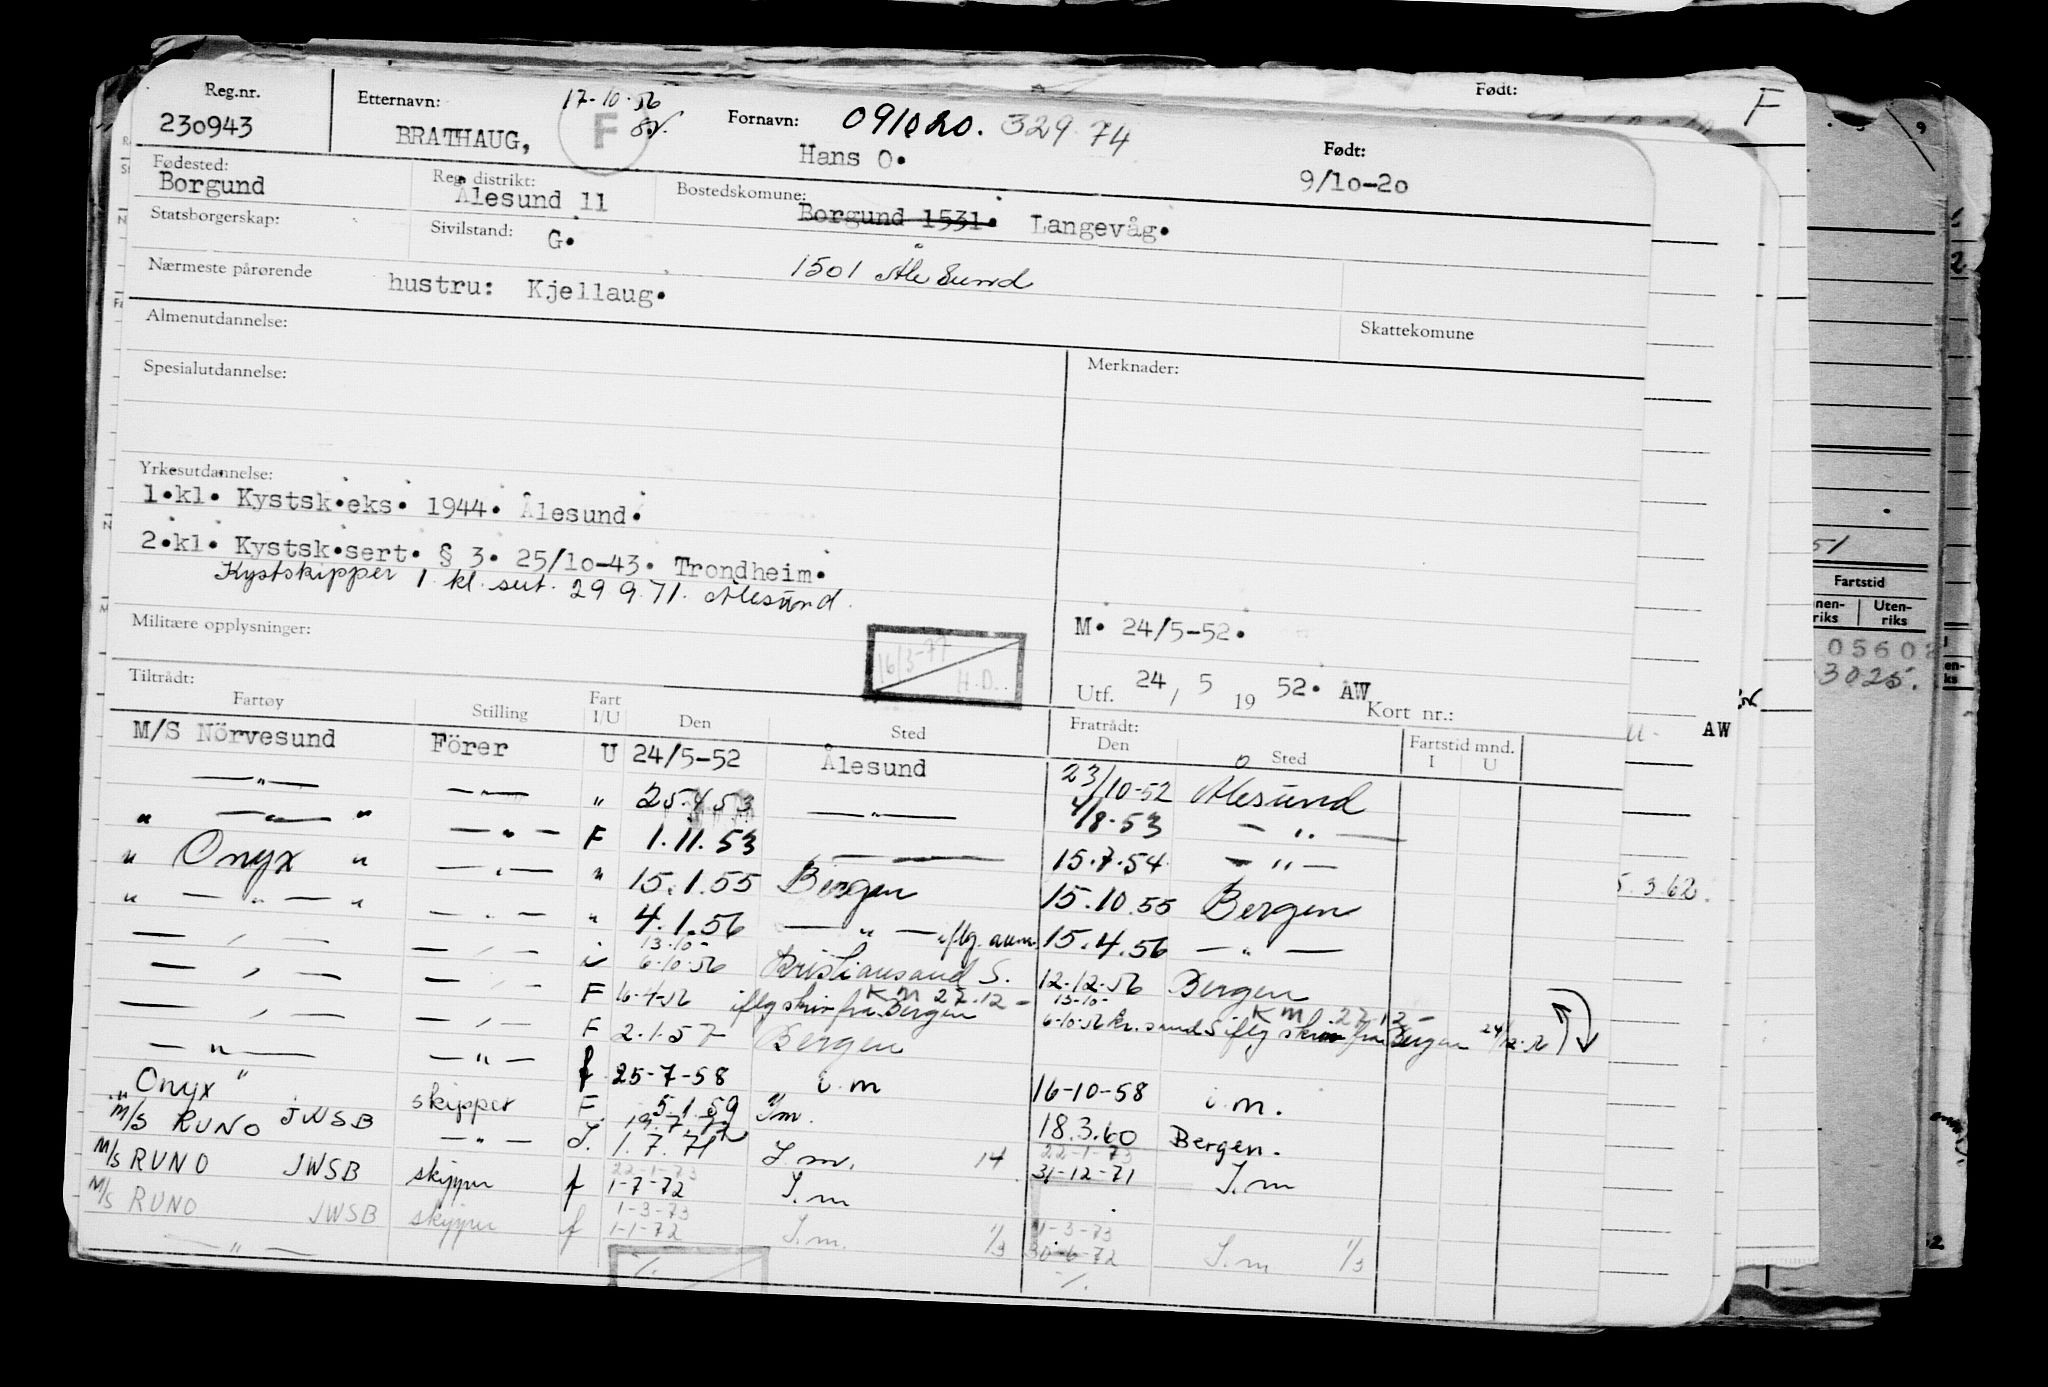 Reg.nr. Etternavn: 17-10-56 Fornavn: 091020. 329 74 Født:
230943 BRATHAUG, F Hans O. 9/10-20
Fødested: Reg. distrikt: Bostedskomune:
Borgund Ålesund 11 Borgund 1531. Langevåg.
Statsborgerskap: Sivilstand: G.
1501 Ålesund
Nærmeste pårørende hustru: Kjellaug.
Almenutdannelse: Skattekomune
Spesialutdannelse: Merknader:
Yrkesutdannelse:
1.kl. Kystsk.eks. 1944. Ålesund.
2.kl. Kystsk.sert. § 3. 25/10-43. Trondheim.
Kystskipper 1 kl. sert. 29 9.71. Ålesund.
Militære opplysninger: 16/3-77 H.D. M. 24/5-52.
Utf. 24, 5 19 52. ÅW Kort nr.:
Tiltrådt: Fratrådt: Fartstid mnd.
Fartøy Stilling Fart I/U Den Sted Den Sted I U
M/S Nörvesund Förer U 24/5-52 Ålesund 23/10-52 Ålesund
— " — — " — " 25.4.53 — " — 4/8-53 — " —
" — " — " — " — F 1.11.53 — " — 15.7.54 — " —
" Onyx " — " — " 15.1.55 Bergen 15.10.55 Bergen
" — " — " — " — " 4.1.56 — " — iflg. 15.4.56 — " —
13.10-
— " — — " — 6-10-56 Kristiansand S. 12.12.56 Bergen
KM 27.12 - 13-10-
— " — — " — F 16-4-56 iflg skriv fra Bergen 6-10-56 Kr.sund S iflg skriv fra Bergen KM 27.12 -
— " — — " — F 2.1.57 Bergen
— " — — " — f 25-7-58 i.m 16-10-58 i.m.
" Onyx " skipper F. 5.1.59 I.m. 18.3.60 Bergen.
19.7.72 22-1-73
M/S RUNO JWSB — " — 1.7.71 I.m. 14 31-12-71 I.m
22-1-73
M/S RUNO JWSB skipper f 1-7-72 I.m
1-3-73 1-3-73
M/S RUNO JWSB skipper f 1-1-72 I.m. 1/3 30-6-72 I.m 1/3
— " —
Født:
F
51
Fartstid
Uten-riks
05602
3025.
AW
5.3.62.